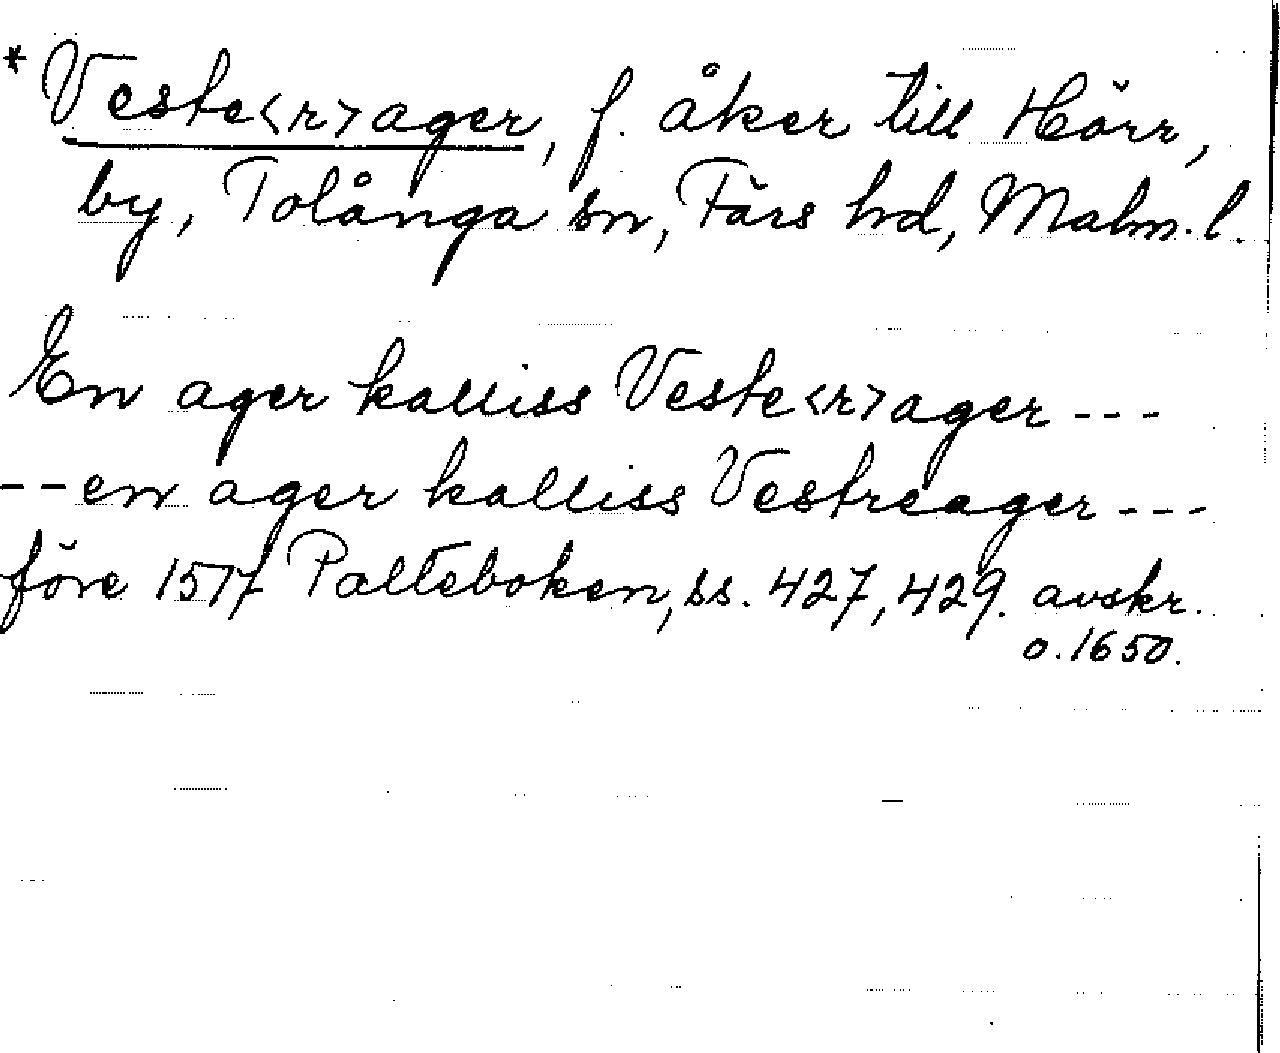 * Veste<r>ager, f. åker till Hörr,
by, Tolånga sn, Färs hd, Malm. l.
En ager kalliss Veste<r>ager ---
-- en ager kalliss Vestreager ---
före 1517 Palteboken, ss. 427, 429. avskr.
o. 1650.